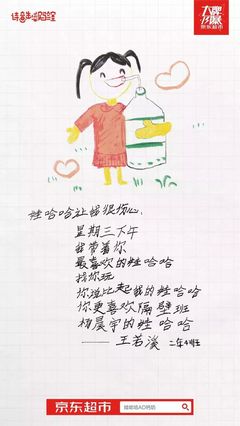 大牌好爆
京东超市
娃哈哈让我很伤心
星期三下午
我带着你
最喜欢的娃哈哈
找你玩
你说比起我的娃哈哈
你更喜欢隔壁班
杨晨宇的娃哈哈
——王若溪 二年4班
京东超市
娃哈哈AD钙奶